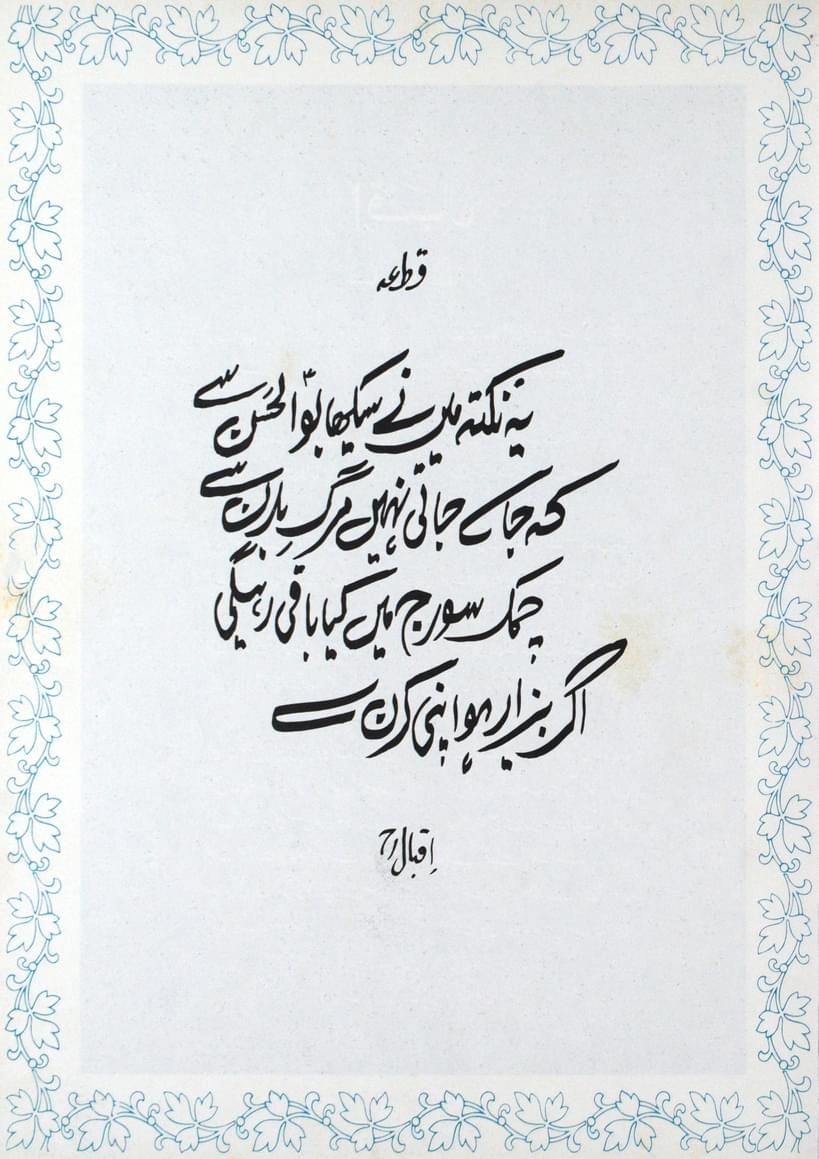 قطعہ
یہ نکتہ میں نے سیکھا بوالحسن سے
کہ جاں جاتی نہیں مرگِ بدن سے
چمک سورج میں کیا باقی رہیگی
اگر بیزار ہو اپنی کرن سے
اقبالؒ